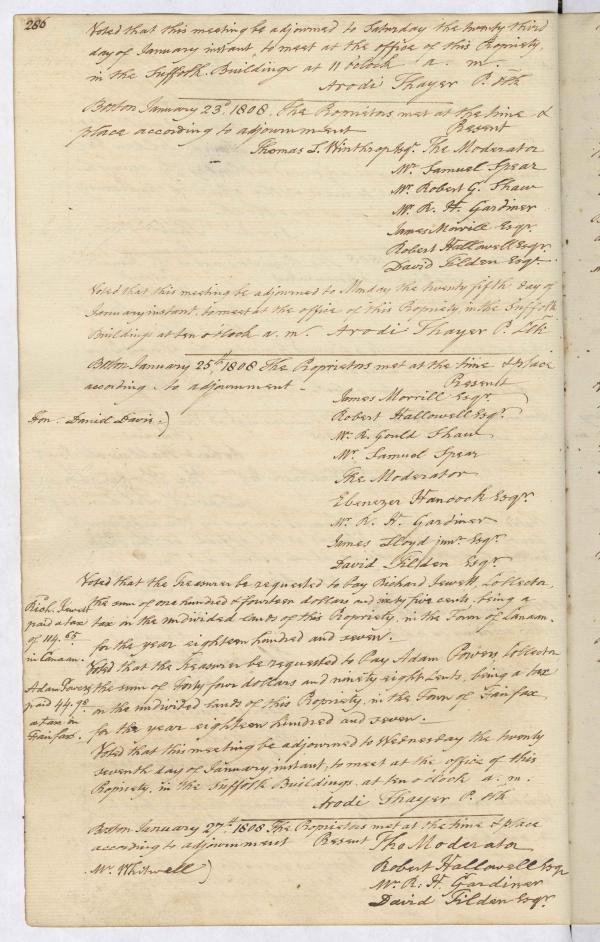 286
Voted that this meeting be adjourned to Saturday the twenty third
day of January instant, to meet at the office of this Propriety,
in the Suffolk Buildings at 11 o'clock a. m.
Arodi Thayer P. Clk
Boston January 23d. 1808. The Proprietors met at the time &
place according to adjournment Present
Thomas L. Winthrop Esqr. The Moderator
Mr. Samuel Spear
Mr. Robert G. Shaw
Mr. R. H. Gardiner
James Morrill Esqr.
Robert Hallowell Esqr.
David Tilden Esqr.
Voted that this meeting be adjourned to Monday the twenty fifth day of
January instant, to meet at the office of this Propriety, in the Suffolk
Buildings at ten o'clock a. m. Arodi Thayer P. Clk
Boston January 25th 1808 The Proprietors met at the time & place
according to adjournment - Present
James Morrill Esqr.
Hon. Daniel Davis.) Robert Hallowell Esqr.
Mr. R. Gould Shaw
Mr. Samuel Spear
The Moderator
Ebenezer Hancock Esqr.
Mr. R. H. Gardiner
James Lloyd junr. Esqr.
David Tilden Esqr.
Voted that the Treasurer be requested to Pay Richard Jewett, Collector,
the sum of one hundred & fourteen dollars and sixty five cents, being a
tax on the undivided lands of this Propriety, in the Town of Canaan.
for the year eighteen hundred and seven.
Rich. Jewett
paid a tax
of 114.65
in Canaan.
Voted that the Treasurer be requested to Pay Adam Powers, Collector
the sum of Forty four dollars and ninety eight Cents, being a tax
on the undivided lands of this Propriety, in the Town of Fairfax
for the year eighteen hundred and seven.
Adam Powers
paid 44.98
as tax in
Fairfax.
Voted that this meeting be adjourned to Wednesday the twenty
seventh day of January, instant, to meet at the office of this
Propriety, in the Suffolk Buildings, at ten o'clock a. m.
Arodi Thayer P. Clk
Boston January 27th 1808 The Proprietors met at the time & place
according to adjournment Present The Moderator
Mr. Whitwell) Robert Hallowell Esqr
Mr. R. H. Gardiner
David Tilden Esqr.